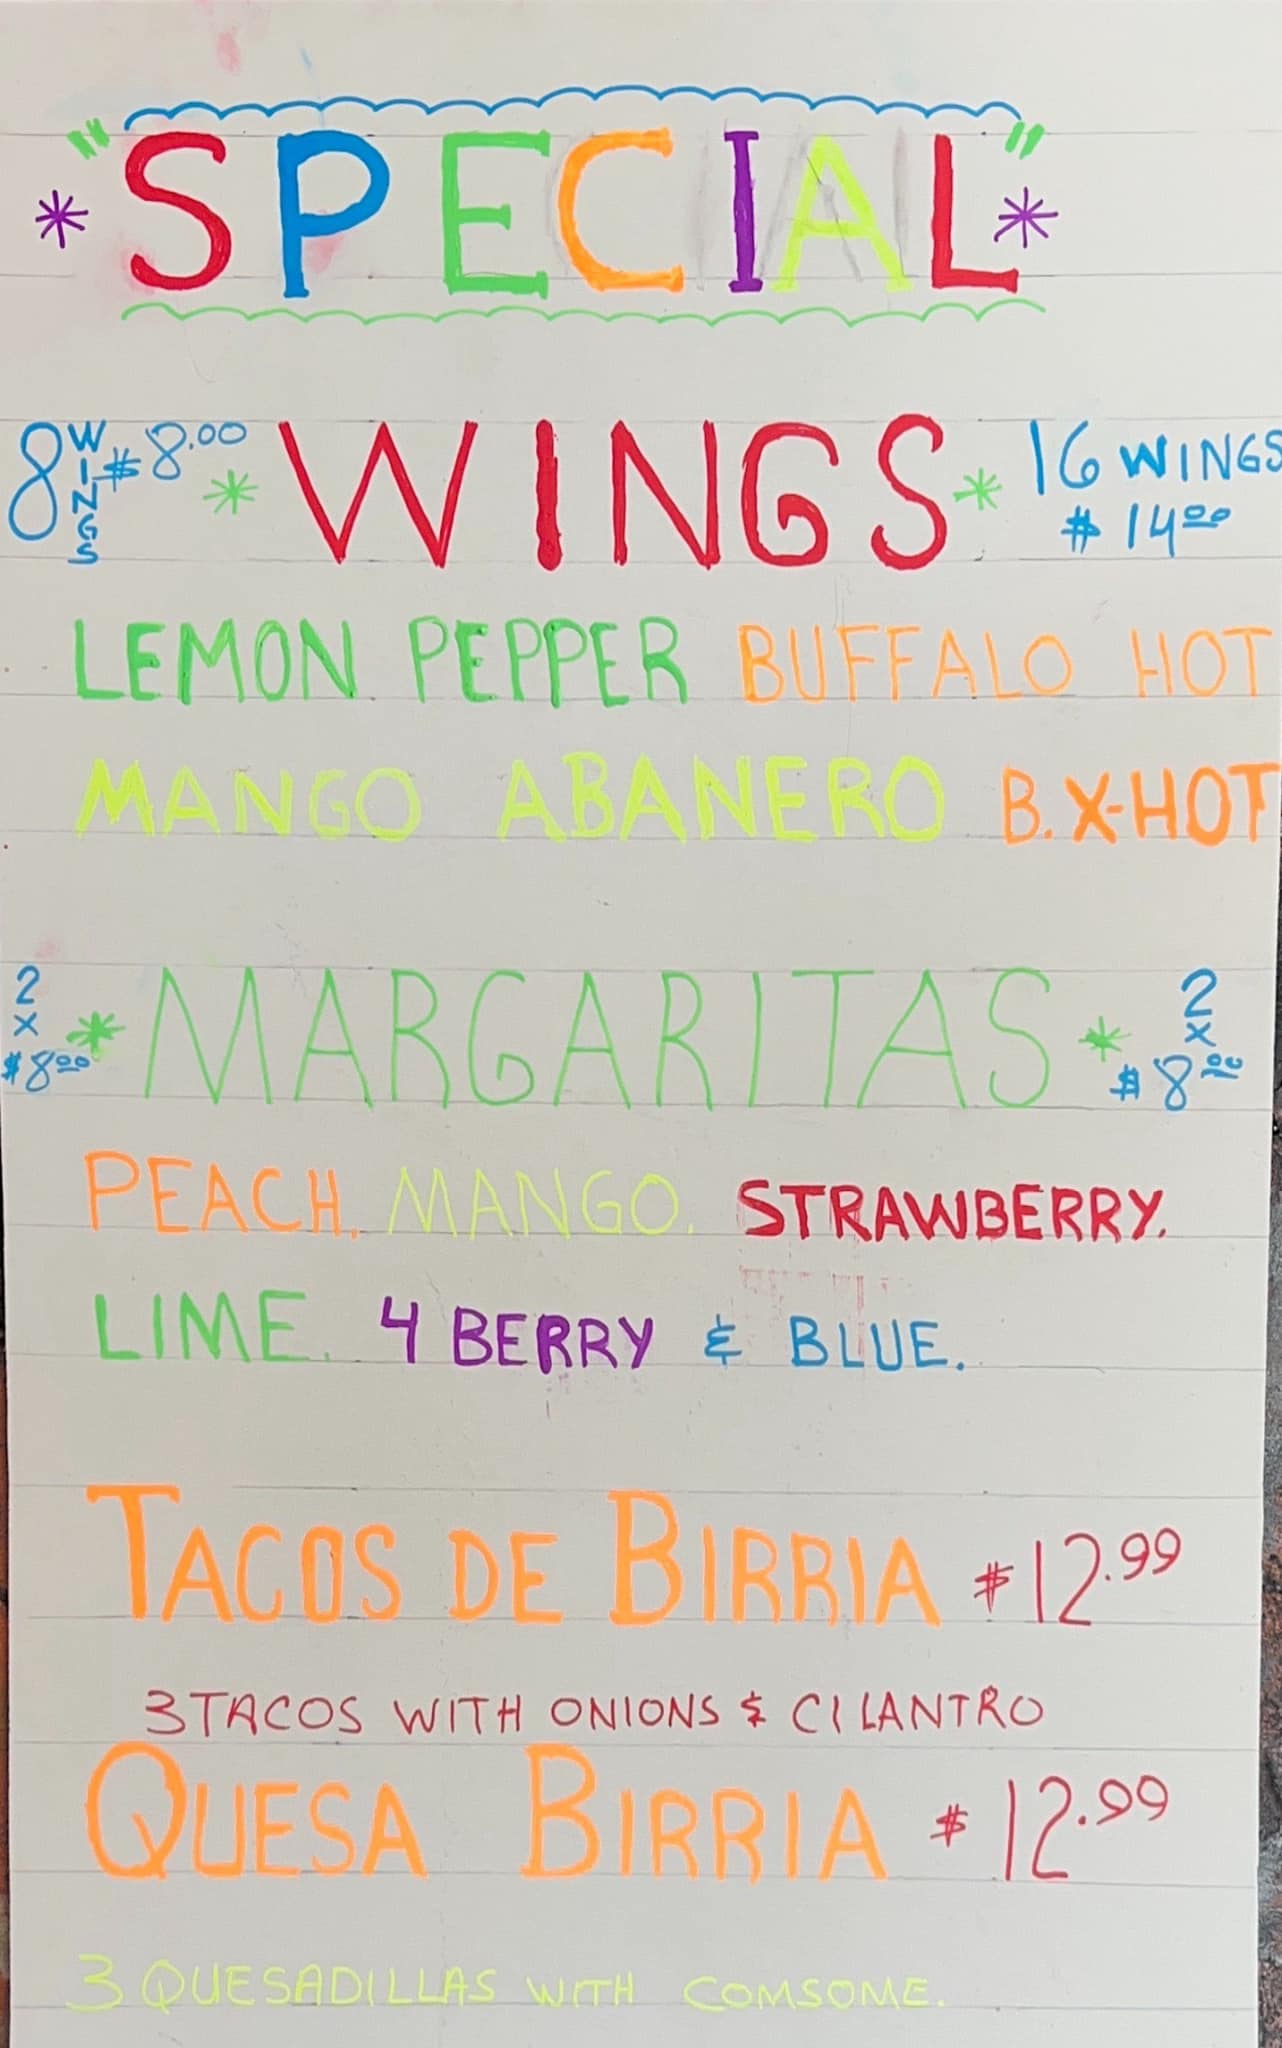 "SPECIAL"
8 WINGS $8.00 * WINGS * 16 WINGS $14.00
LEMON PEPPER BUFFALO HOT
MANGO ABANERO B. X-HOT
2 x $8.00 * MARGARITAS * 2 x $8.00
PEACH. MANGO. STRAWBERRY.
LIME. 4 BERRY & BLUE.
TACOS DE BIRRIA $12.99
3 TACOS WITH ONIONS & CILANTRO
QUESA BIRRIA $12.99
3 QUESADILLAS WITH COMSOME.